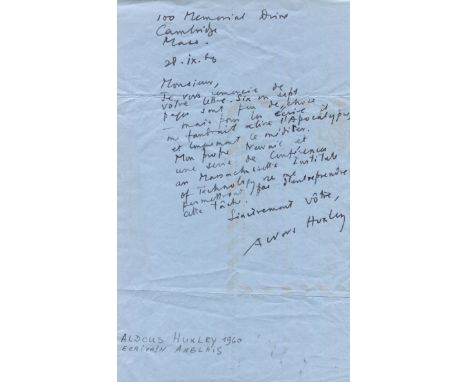 100 Memorial Drive
Cambridge
Mass.
28.ix.60
Monsieur,
Je vous remercie de
votre lettre. Six ou sept
pages sont peu de chose
— mais pour les écrire il
me faudrait relire l'Apocalypse
et longuement le méditer.
Mon propre travail et
une série de Conférences
au Massachusetts Institute
of Technology ne me
permettront pas d'entreprendre
cette tâche.
Sincèrement vôtre,
Aldous Huxley
ALDOUS HUXLEY 1960
ECRIVAIN ANGLAIS